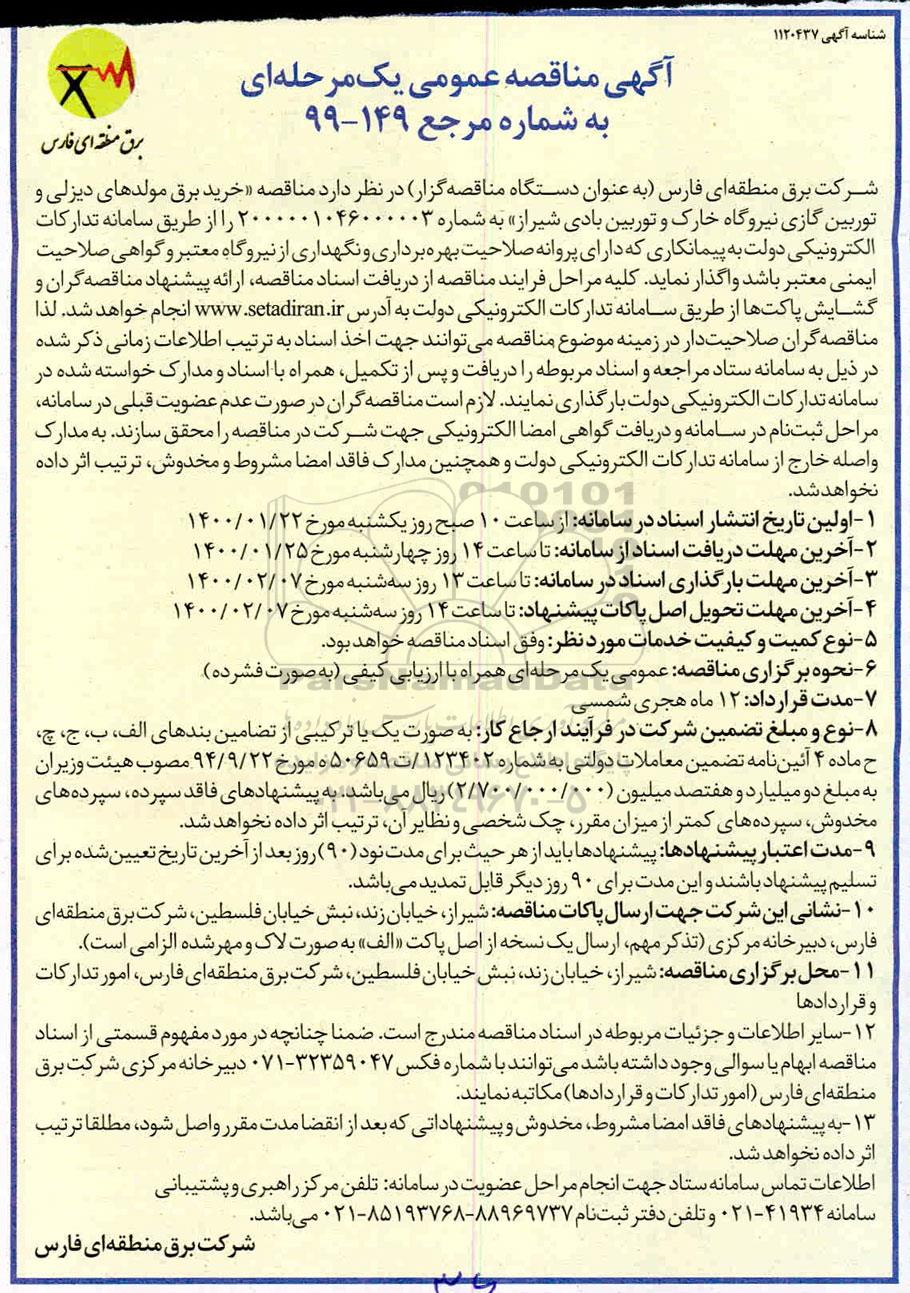 شناسه آگهی ۱۱۲۰۴۳۷
آگهی مناقصه عمومی یک‌مرحله‌ای
به شماره مرجع ۱۴۹-۹۹
برق منطقه‌ای فارس
شرکت برق منطقه‌ای فارس (به عنوان دستگاه مناقصه‌گزار) در نظر دارد مناقصه «خرید برق مولدهای دیزلی و
توربین گازی نیروگاه خارک و توربین بادی شیراز» به شماره ۲۰۰۰۰۰۱۰۴۶۰۰۰۰۰۳ را از طریق سامانه تدارکات
الکترونیکی دولت به پیمانکاری که دارای پروانه صلاحیت بهره‌برداری و نگهداری از نیروگاه معتبر و گواهی صلاحیت
ایمنی معتبر باشد واگذار نماید. کلیه مراحل فرایند مناقصه از دریافت اسناد مناقصه، ارائه پیشنهاد مناقصه‌گران و
گشایش پاکت‌ها از طریق سامانه تدارکات الکترونیکی دولت به آدرس www.setadiran.ir انجام خواهد شد. لذا
مناقصه‌گران صلاحیت‌دار در زمینه موضوع مناقصه می‌توانند جهت اخذ اسناد به ترتیب اطلاعات زمانی ذکر شده
در ذیل به سامانه ستاد مراجعه و اسناد مربوطه را دریافت و پس از تکمیل، همراه با اسناد و مدارک خواسته شده در
سامانه تدارکات الکترونیکی دولت بارگذاری نمایند. لازم است مناقصه‌گران در صورت عدم عضویت قبلی در سامانه،
مراحل ثبت‌نام در سامانه و دریافت گواهی امضا الکترونیکی جهت شرکت در مناقصه را محقق سازند. به مدارک
واصله خارج از سامانه تدارکات الکترونیکی دولت و همچنین مدارک فاقد امضا مشروط و مخدوش، ترتیب اثر داده
نخواهد شد.
۱-اولین تاریخ انتشار اسناد در سامانه: از ساعت ۱۰ صبح روز یکشنبه مورخ ۱۴۰۰/۰۱/۲۲
۲-آخرین مهلت دریافت اسناد از سامانه: تا ساعت ۱۴ روز چهارشنبه مورخ ۱۴۰۰/۰۱/۲۵
۳-آخرین مهلت بارگذاری اسناد در سامانه: تا ساعت ۱۳ روز سه‌شنبه مورخ ۱۴۰۰/۰۲/۰۷
۴-آخرین مهلت تحویل اصل پاکات پیشنهاد: تا ساعت ۱۴ روز سه‌شنبه مورخ ۱۴۰۰/۰۲/۰۷
۵-نوع کمیت و کیفیت خدمات مورد نظر: وفق اسناد مناقصه خواهد بود.
۶-نحوه برگزاری مناقصه: عمومی یک مرحله‌ای همراه با ارزیابی کیفی (به صورت فشرده)
۷-مدت قرارداد: ۱۲ ماه هجری شمسی
۸-نوع و مبلغ تضمین شرکت در فرآیند ارجاع کار: به صورت یک یا ترکیبی از تضامین بندهای الف، ب، ج، چ،
ح ماده ۴ آئین‌نامه تضمین معاملات دولتی به شماره ۱۲۳۴۰۲/ت۵۰۶۵۹ه مورخ ۹۴/۹/۲۲ مصوب هیئت وزیران
به مبلغ دو میلیارد و هفتصد میلیون (۲/۷۰۰/۰۰۰/۰۰۰) ریال می‌باشد. به پیشنهادهای فاقد سپرده، سپرده‌های
مخدوش، سپرده‌های کمتر از میزان مقرر، چک شخصی و نظایر آن، ترتیب اثر داده نخواهد شد.
۹-مدت اعتبار پیشنهادها: پیشنهادها باید از هر حیث برای مدت نود (۹۰) روز بعد از آخرین تاریخ تعیین‌شده برای
تسلیم پیشنهاد باشند و این مدت برای ۹۰ روز دیگر قابل تمدید می‌باشد.
۱۰-نشانی این شرکت جهت ارسال پاکات مناقصه: شیراز، خیابان زند، نبش خیابان فلسطین، شرکت برق منطقه‌ای
فارس، دبیرخانه مرکزی (تذکر مهم، ارسال یک نسخه از اصل پاکت «الف» به صورت لاک و مهر شده الزامی است).
۱۱-محل برگزاری مناقصه: شیراز، خیابان زند، نبش خیابان فلسطین، شرکت برق منطقه‌ای فارس، امور تدارکات
و قراردادها
۱۲-سایر اطلاعات و جزئیات مربوطه در اسناد مناقصه مندرج است. ضمنا چنانچه در مورد مفهوم قسمتی از اسناد
مناقصه ابهام یا سوالی وجود داشته باشد می‌توانند با شماره فکس ۳۲۳۵۹۰۴۷-۰۷۱ دبیرخانه مرکزی شرکت برق
منطقه‌ای فارس (امور تدارکات و قراردادها) مکاتبه نمایند.
۱۳-به پیشنهادهای فاقد امضا مشروط، مخدوش و پیشنهاداتی که بعد از انقضا مدت مقرر واصل شود، مطلقا ترتیب
اثر داده نخواهد شد.
اطلاعات تماس سامانه ستاد جهت انجام مراحل عضویت در سامانه: تلفن مرکز راهبری و پشتیبانی
سامانه ۴۱۹۳۴-۰۲۱ و تلفن دفتر ثبت‌نام ۸۸۹۶۹۷۳۷-۸۵۱۹۳۷۶۸-۰۲۱ می‌باشد.
شرکت برق منطقه‌ای فارس